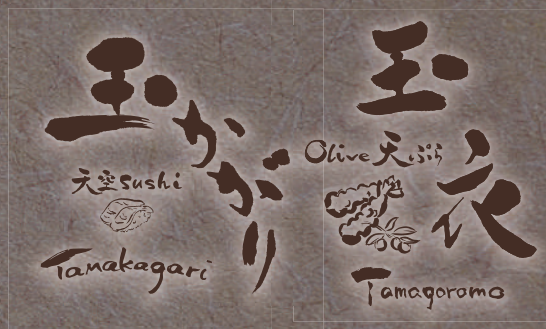 玉かがり
天空sushi
Tamakagari
玉衣
Olive天ぷら
Tamagoromo